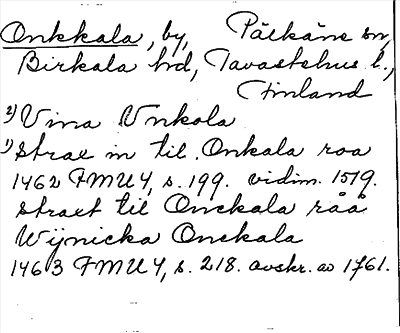 Onkkala, by, Pälkäne sn,
Birkala hd, Tavastehus l.,
Finland
2) Vina Vnkola
1) Strae in til Onkala roa
1462 FMU 4, s. 199. vidim. 1579.
straet til Onckala råå
Wijnicka Onckala
1463 FMU 4, s. 218. avskr. av 1761.